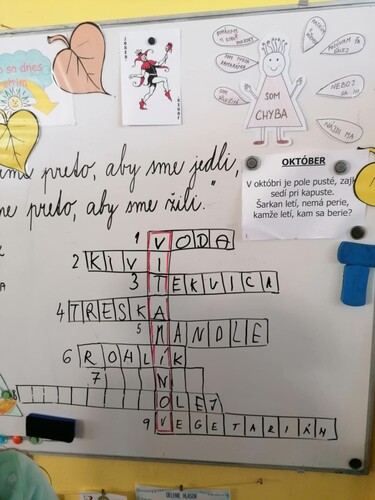 JOKER
SOM
CHYBA
NEBOJ
SA MA
NÁJDI MA
OKTÓBER
V októbri je pole pusté, zajk
sedí pri kapuste.
Šarkan letí, nemá perie,
kamže letí, kam sa berie?
preto, aby sme jedli,
me preto, aby sme žili."
1 VODA
2 KIVI
3 TEKVICA
4 TRESKA
5 MANDLE
6 ROHLÍK
7 N
8 OLEJ
9 VEGETARIÁN